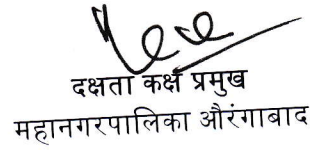 दक्षता कक्ष प्रमुख
महानगरपालिका औरंगाबाद